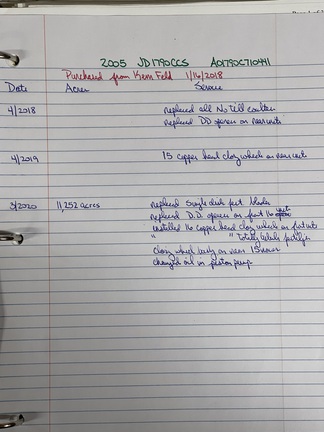 2005 JD1790CCS A01790C710441
Purchased from Kern Feld 1/16/2018
Date Acres Service
4/2018 replaced all No till coulters
replaced DD openers on rear units
4/2019 15 copper head closing wheels on rear units
3/2020 11,252 acres replaced Single disk fert blades
replaced D.D. openers on front 16 units
installed 16 copper head closing wheels on front units
" " fertilizer
closing wheel on rear 15 rows
changed oil in piston pump